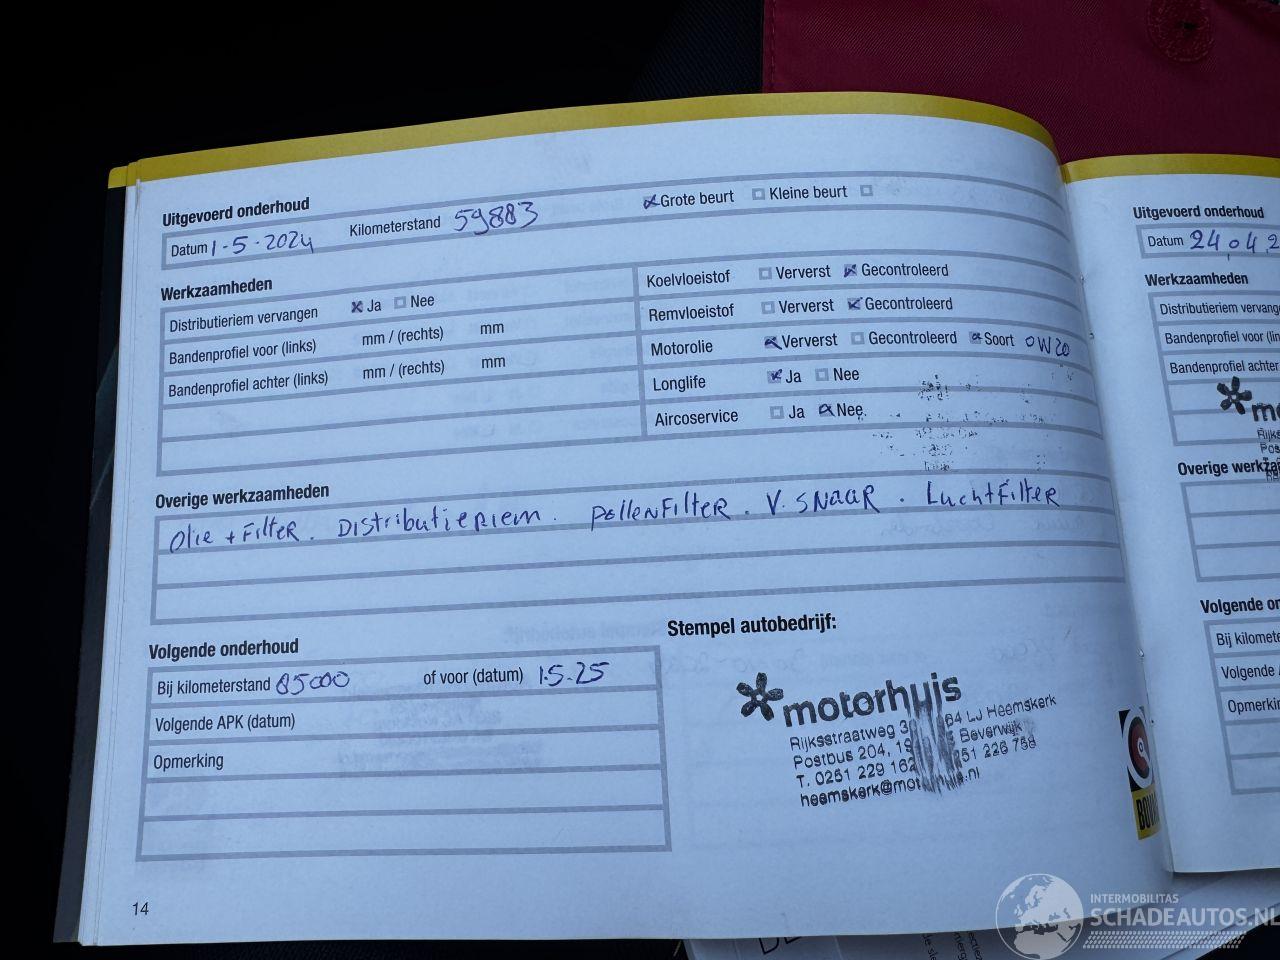 Uitgevoerd onderhoud
Datum 1-5-2024 Kilometerstand 59883 Grote beurt Kleine beurt
Werkzaamheden
Distributieriem vervangen Ja Nee
Bandenprofiel voor (links) mm / (rechts) mm
Bandenprofiel achter (links) mm / (rechts) mm
Koelvloeistof Ververst Gecontroleerd
Remvloeistof Ververst Gecontroleerd
Motorolie Ververst Gecontroleerd Soort 0W20
Longlife Ja Nee
Aircoservice Ja Nee
Overige werkzaamheden
Olie + Filter. Distributieriem. Pollenfilter. V. Snaar. Luchtfilter
Volgende onderhoud
Bij kilometerstand 85000 of voor (datum) 1.5.25
Volgende APK (datum)
Opmerking
Stempel autobedrijf:
motorhuis
Rijksstraatweg 64 LJ Heemskerk
Postbus 204, Beverwijk
T. 0251 229 162 251 226 758
14
Uitgevoerd onderhoud
Datum 24.04.2
Werkzaamheden
Distributieriem
Bandenprofiel voor
Bandenprofiel achter
Overige
Volgende
Bij
Volgende
INTERMOBILITAS
SCHADEAUTOS.NL